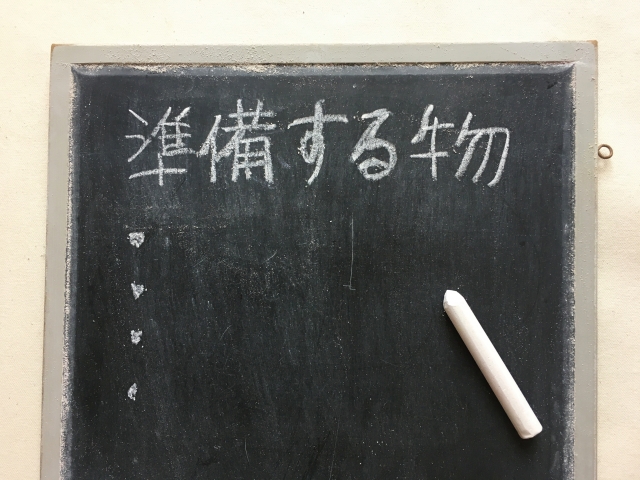 準備する物
・
・
・
・